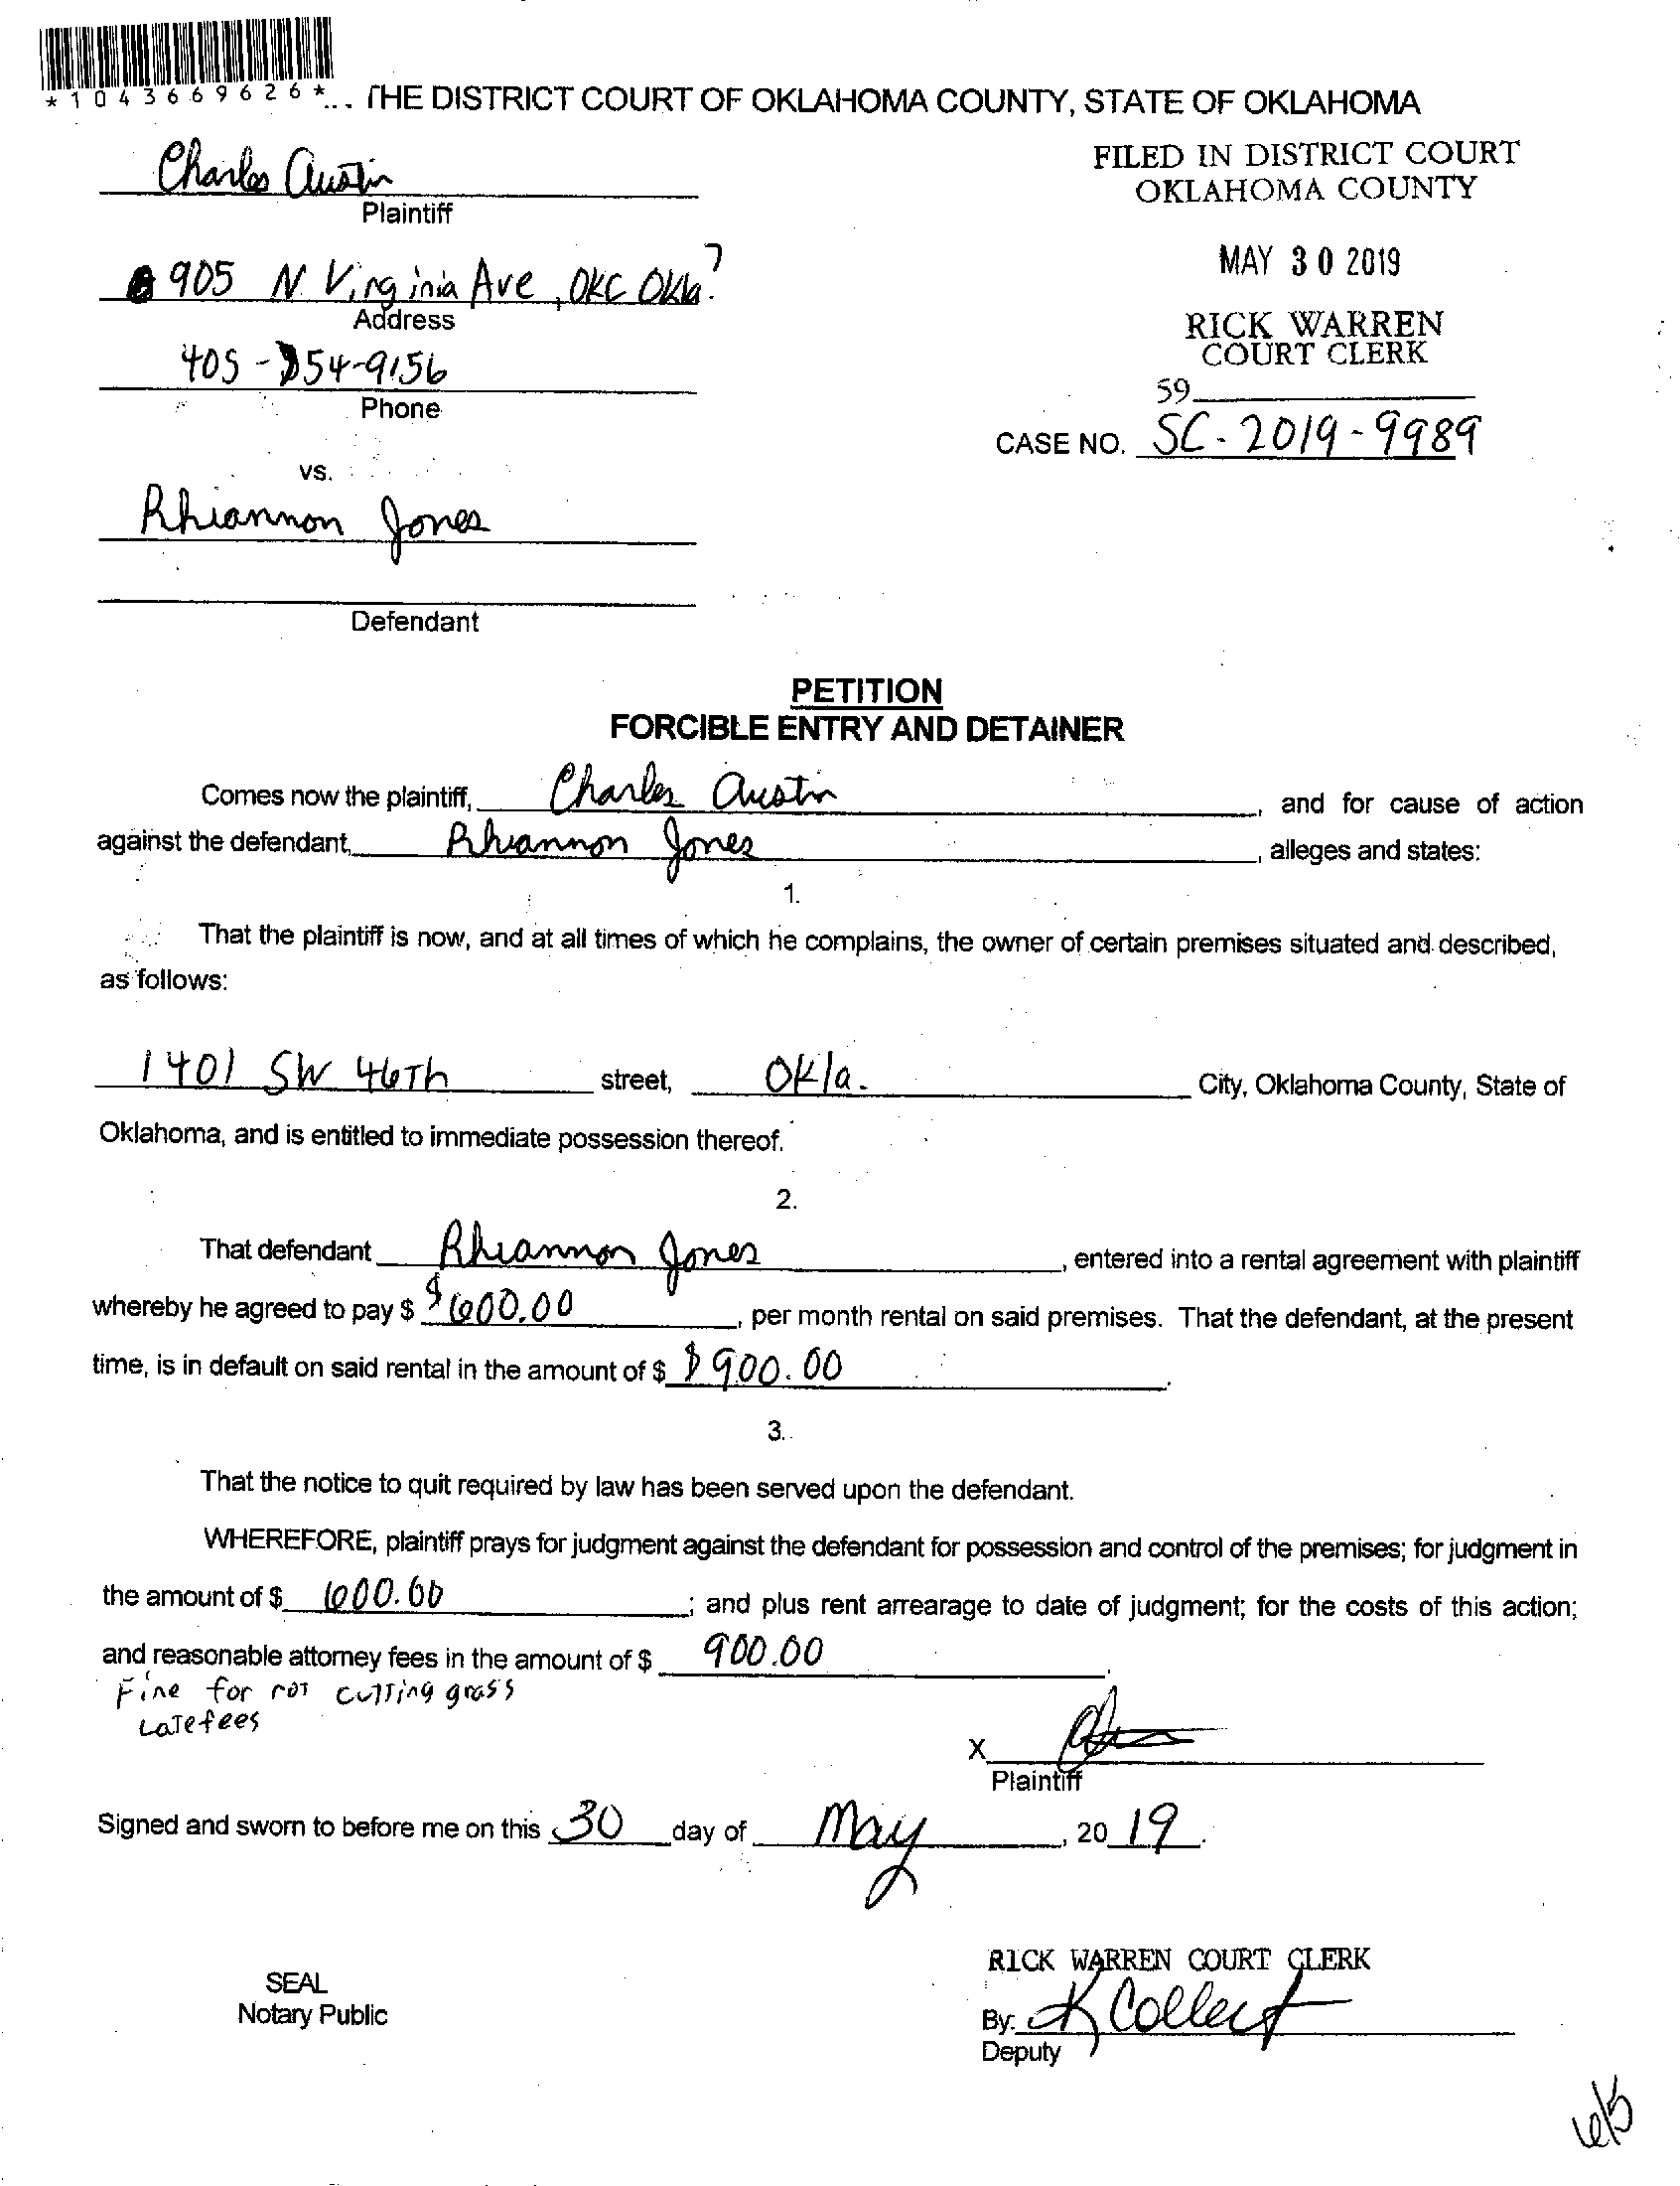 *1043669626*... THE DISTRICT COURT OF OKLAHOMA COUNTY, STATE OF OKLAHOMA
Charles Austin
Plaintiff
FILED IN DISTRICT COURT
OKLAHOMA COUNTY
MAY 30 2019
RICK WARREN
COURT CLERK
59
905 N. Virginia Ave, OKC Okla.
Address
405-   54-9156
Phone
CASE NO. SC-2019-9989
vs.
Rhiannon Jones
Defendant
PETITION
FORCIBLE ENTRY AND DETAINER
Comes now the plaintiff, Charles Austin, and for cause of action
against the defendant, Rhiannon Jones, alleges and states:
1.
That the plaintiff is now, and at all times of which he complains, the owner of certain premises situated and described,
as follows:
1401 SW 46Th street, Okla. City, Oklahoma County, State of
Oklahoma, and is entitled to immediate possession thereof.
2.
That defendant Rhiannon Jones, entered into a rental agreement with plaintiff
whereby he agreed to pay $ $600.00, per month rental on said premises. That the defendant, at the present
time, is in default on said rental in the amount of $ $900.00.
3.
That the notice to quit required by law has been served upon the defendant.
WHEREFORE, plaintiff prays for judgment against the defendant for possession and control of the premises; for judgment in
the amount of $ 600.00; and plus rent arrearage to date of judgment; for the costs of this action;
and reasonable attorney fees in the amount of $ 900.00.
Fine for not cutting grass
Late fees
X
Plaintiff
Signed and sworn to before me on this 30 day of May, 20 19.
RICK WARREN COURT CLERK
SEAL
Notary Public
By: K Collect
Deputy
6/5